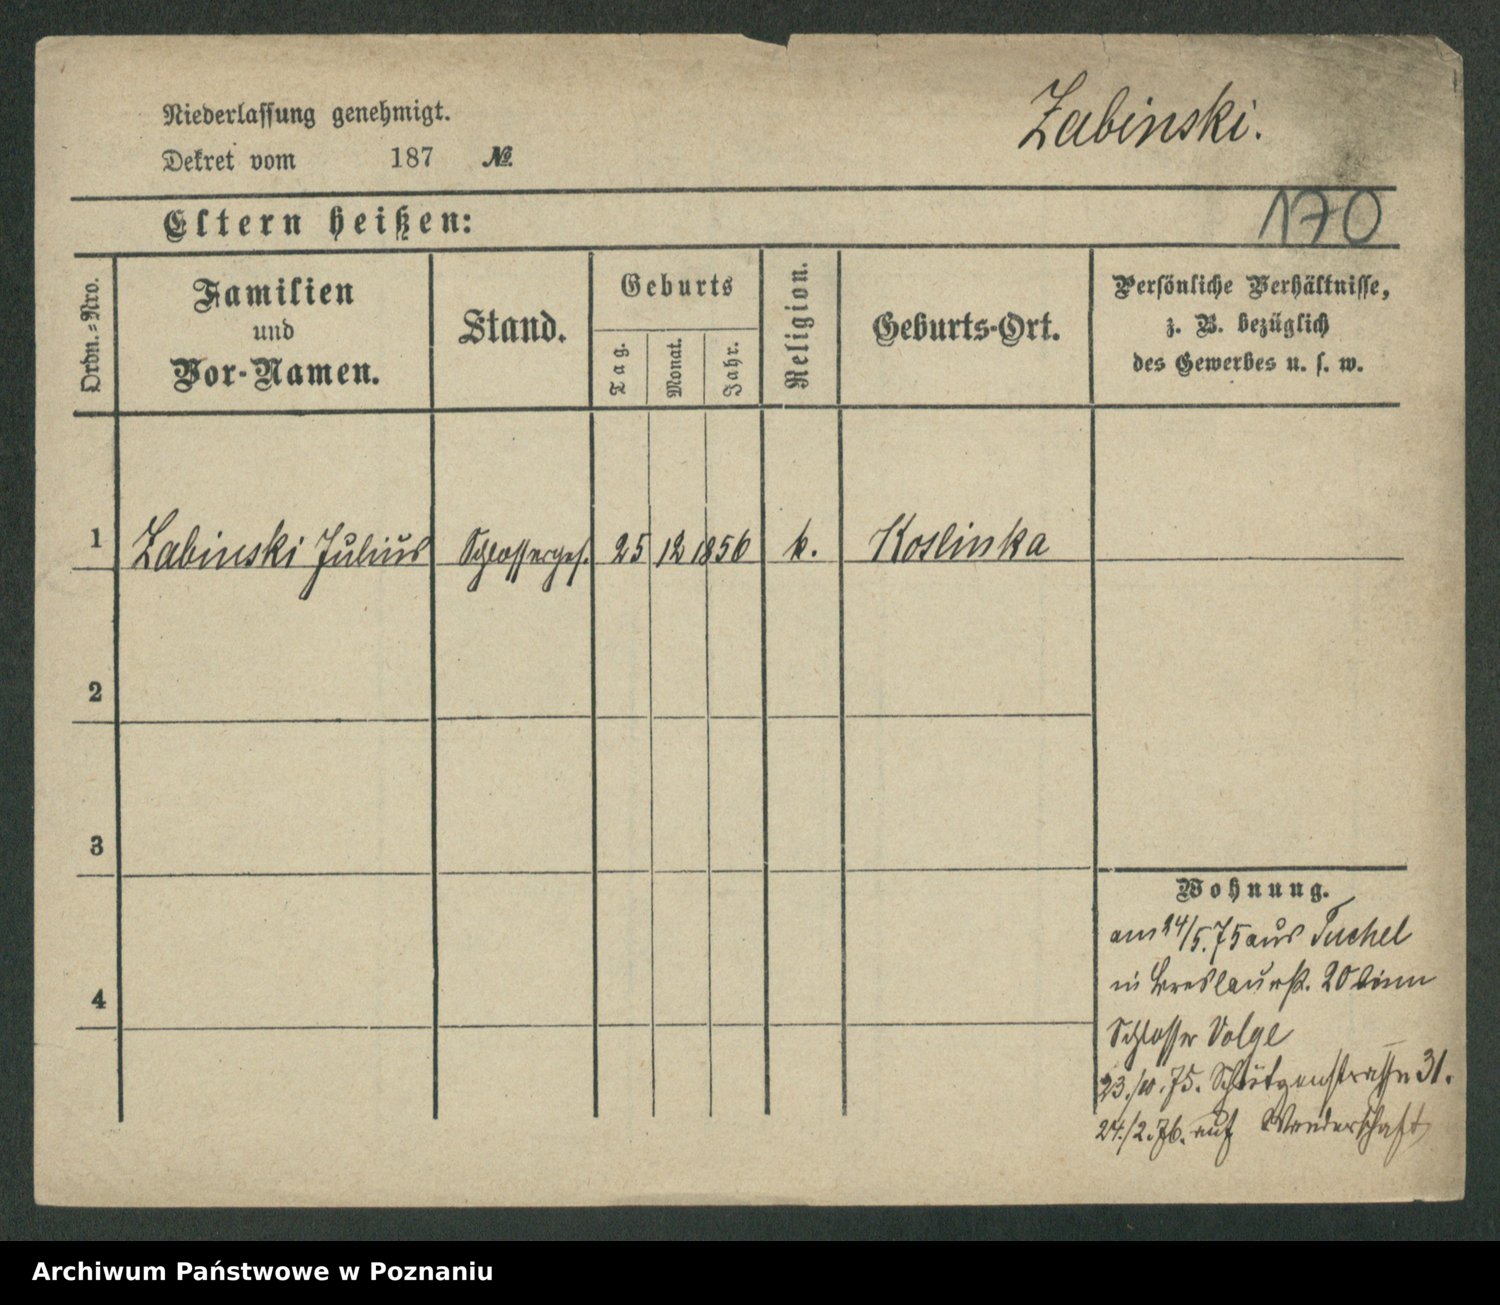 Niederlassung genehmigt.
Zabinski.
Dekret vom 187 №
Eltern heißen:
170
Ordn.=Nro.
Familien
und
Vor-Namen.
Stand.
Geburts
Tag.
Monat.
Jahr.
Religion.
Geburts-Ort.
Persönliche Verhältnisse,
z. B. bezüglich
des Gewerbes u. s. w.
1 Zabinski Julius Schlosserges. 25 12 1856 k. Koslinka
2
3
4
Wohnung.
am 24/5.75 aus Tuchel
in Breslauerst. 20 beim
Schlosser Volge
23./10.75. Schützenstrasse 31.
24./2.76. auf Wanderschaft
Archiwum Państwowe w Poznaniu